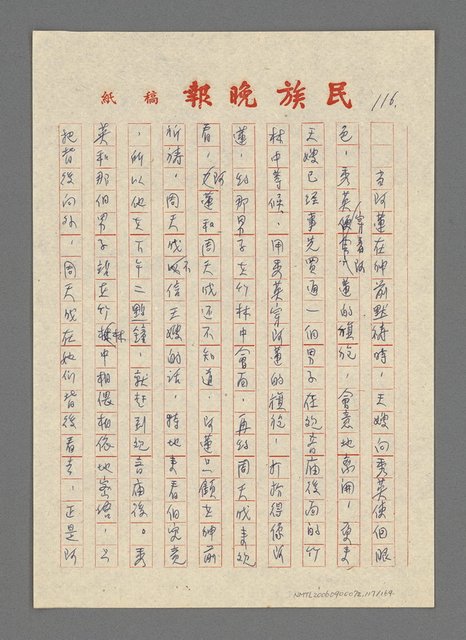 116.
民族晚報 稿紙
當阿蓮在神前默禱時,天嫂向秀英使個眼
色,秀英便穿着阿蓮的旗袍,會意地離開,原來
天嫂已經事先買通一個男子在观音庙後面的竹
林中等候,用秀英穿阿蓮的旗袍,打扮得像阿
蓮,約那男子在竹林中會面,再約周天成來观
看,阿蓮和周天成還不知道,阿蓮只顧在神前
祈禱。周天成不信王嫂的話,特地來看個究竟
,所以他在下午二點鐘,就趕到观音庙後。秀
英和那個男子站在竹林中相偎相依地密语,只
把背後向外,周天成在她们背後看去,正是阿